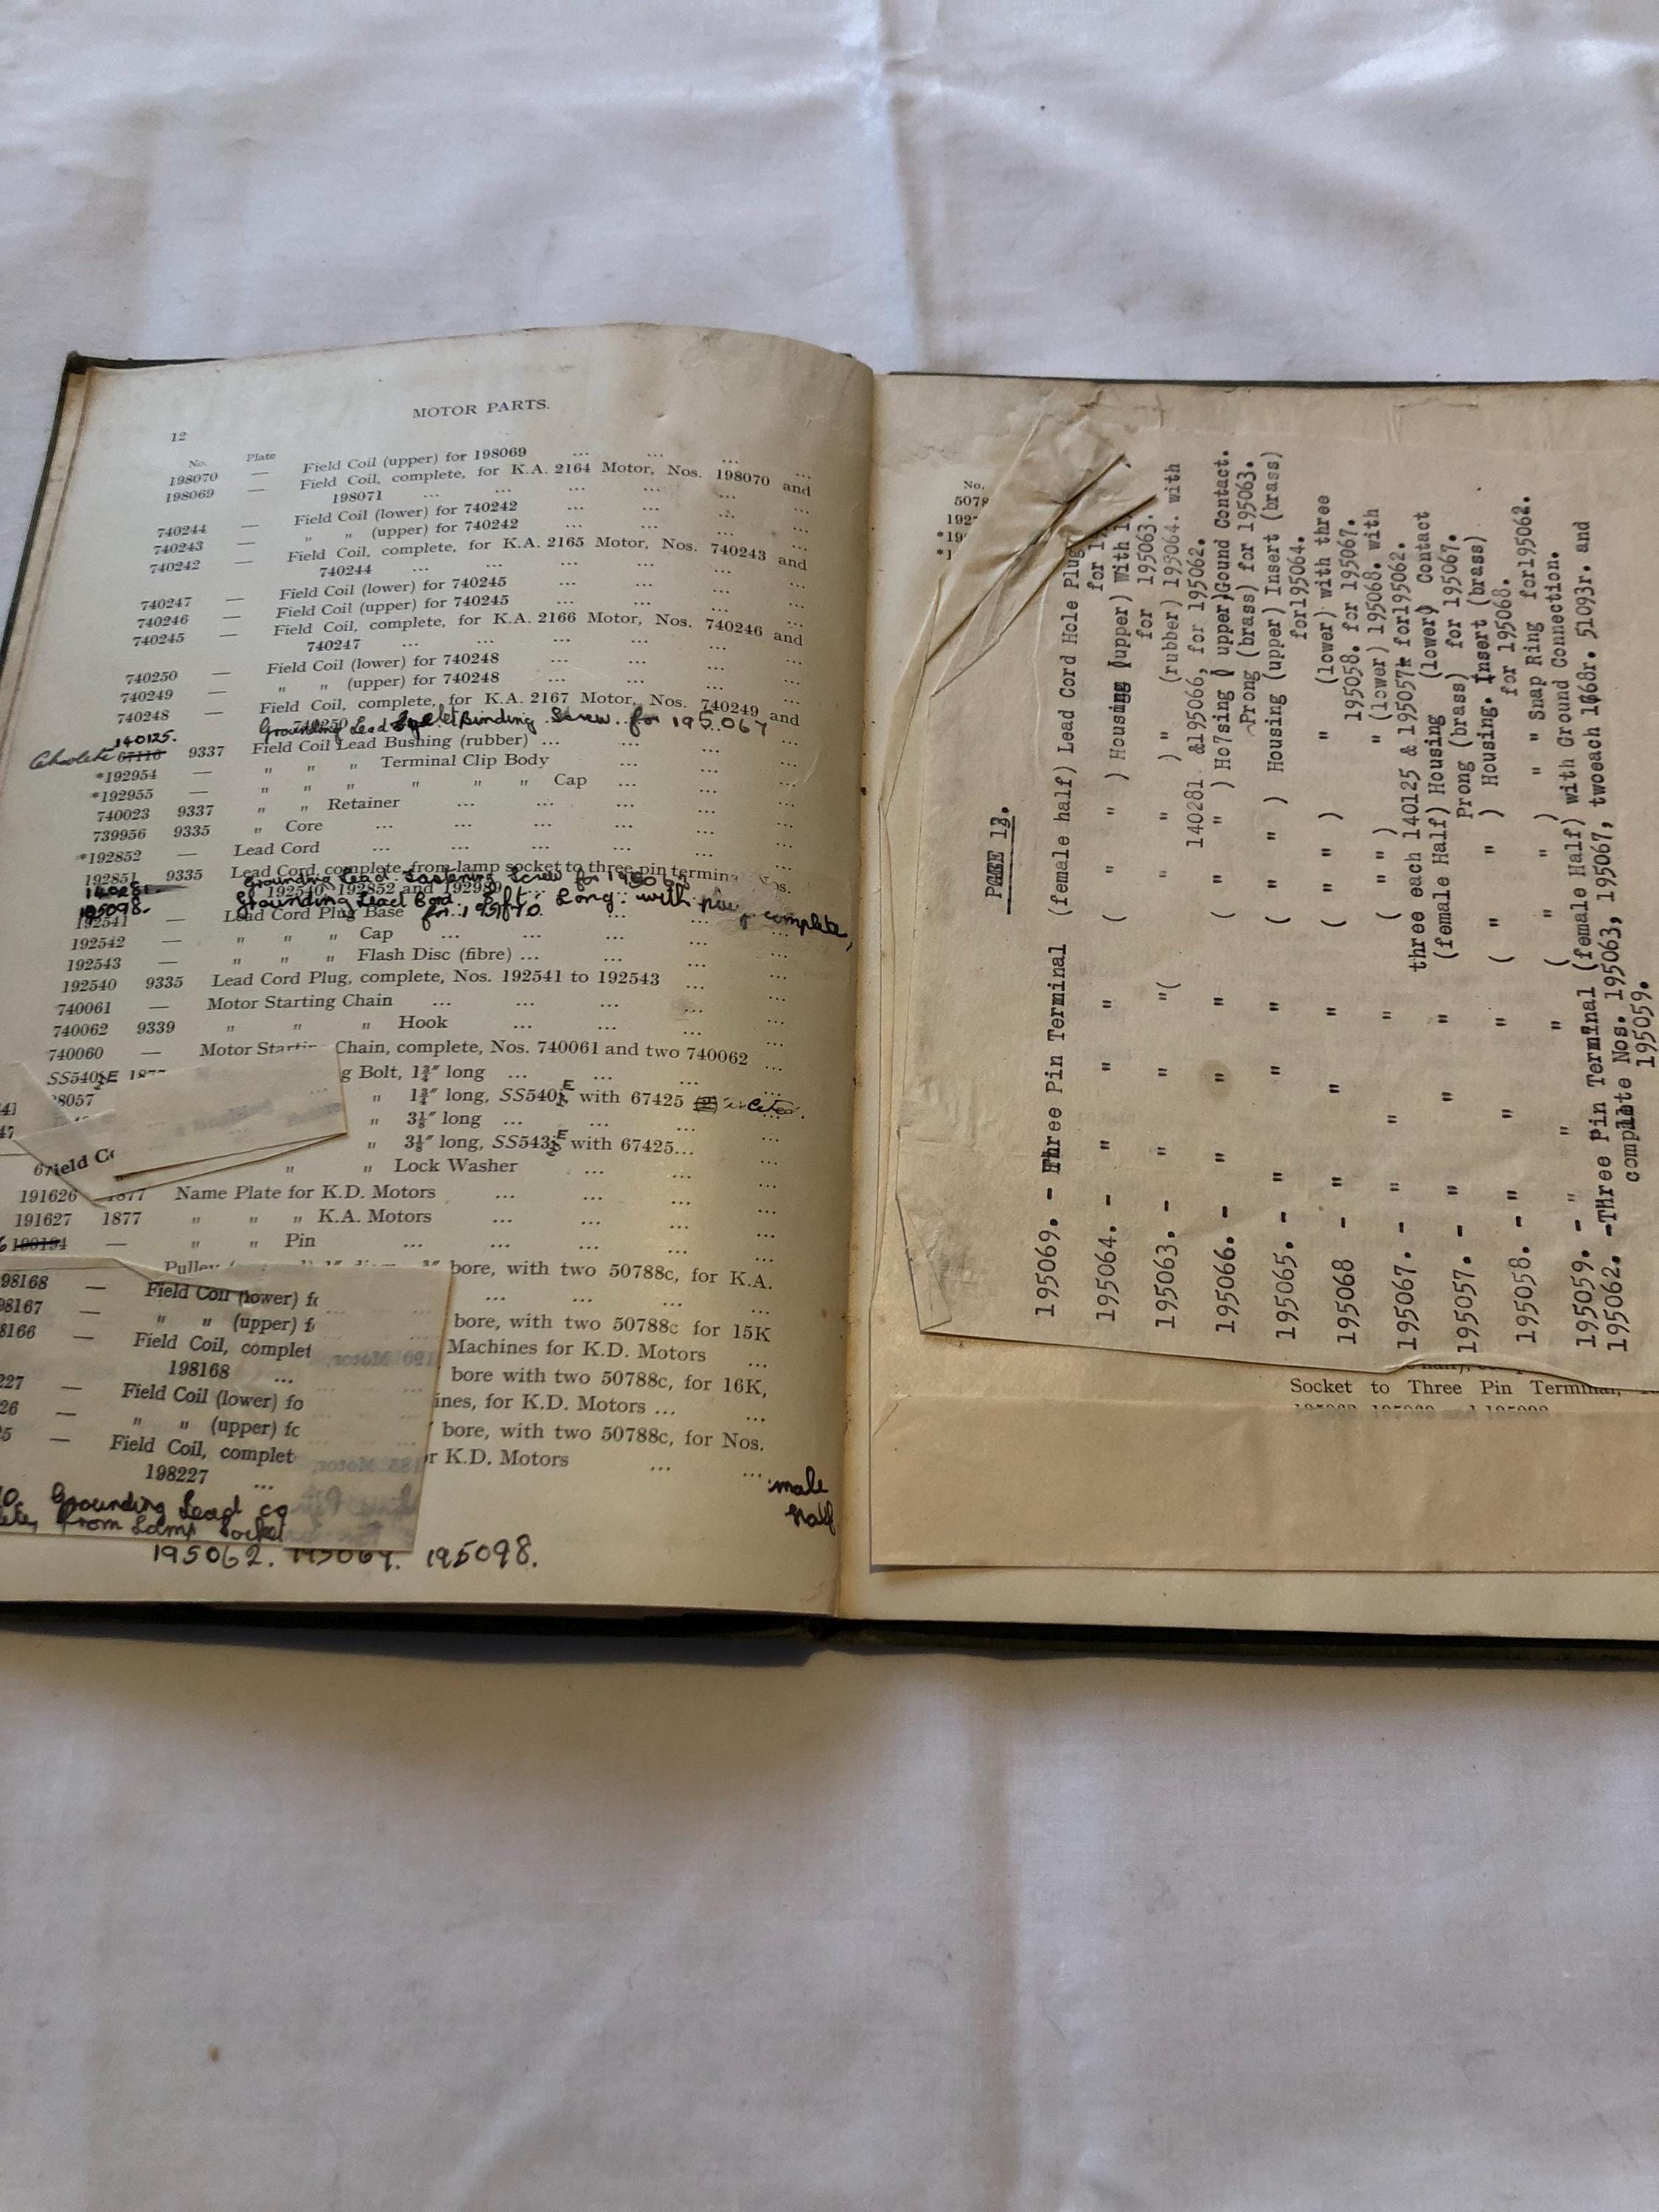 12
MOTOR PARTS.
No. Plate
198070 — Field Coil (upper) for 198069 ... ... ... ...
198069 — Field Coil, complete, for K.A. 2164 Motor, Nos. 198070 and
198071 ... ... ... ... ... ...
740244 — Field Coil (lower) for 740242 ... ... ... ...
740243 — " " (upper) for 740242 ... ... ... ...
740242 — Field Coil, complete, for K.A. 2165 Motor, Nos. 740243 and
740244 ... ... ... ... ... ...
740247 — Field Coil (lower) for 740245 ... ... ... ...
740246 — Field Coil (upper) for 740245 ... ... ... ...
740245 — Field Coil, complete, for K.A. 2166 Motor, Nos. 740246 and
740247 ... ... ... ... ...
740250 — Field Coil (lower) for 740248 ... ... ... ...
740249 — " " (upper) for 740248 ... ... ... ...
740248 — Field Coil, complete, for K.A. 2167 Motor, Nos. 740249 and
740250
Grounding Lead Eyelet Binding Screw for 195067
140125.
Obsolete 67116 9337 Field Coil Lead Bushing (rubber) ... ... ... ...
*192954 — " " " Terminal Clip Body ... ... ...
*192955 — " " " " " " Cap ... ...
740023 9337 " " Retainer ... ... ... ... ...
739956 9335 " Core ... ... ... ... ... ...
*192852 — Lead Cord ... ... ... ... ... ...
192851 9335 Lead Cord, complete, from lamp socket to three pin terminal, Nos.
192540, 192852 and 192989
140281 Grounding Lead Fastening Screw for 195063
195098. Grounding Lead Cord. ft. Long. with complete,
for 195170.
192541 — Lead Cord Plug Base
192542 — " " " Cap ... ... ... ...
192543 — " " " Flash Disc (fibre) ... ... ... ...
192540 9335 Lead Cord Plug, complete, Nos. 192541 to 192543 ... ...
740061 — Motor Starting Chain ... ... ... ... ...
740062 9339 " " " Hook ... ... ... ...
740060 — Motor Starting Chain, complete, Nos. 740061 and two 740062
SS540½E 1877 g Bolt, 1¾″ long ... ... ... ...
8057 " 1¾″ long, SS540½E with 67425
" 3⅛″ long ... ... ... ...
" 3⅛″ long, SS543½E with 67425... ...
67 ield Co " " Lock Washer ... ... ...
191626 1877 Name Plate for K.D. Motors ... ... ... ...
191627 1877 " " " K.A. Motors ... ... ... ...
— " " Pin ... ... ... ... ...
Pulley bore, with two 50788c, for K.A.
98168 — Field Coil (lower) fo ... ... ... ...
98167 — " " (upper) f bore, with two 50788c for 15K
8166 — Field Coil, complet Machines for K.D. Motors ...
198168 ... bore with two 50788c, for 16K,
227 — Field Coil (lower) fo ines, for K.D. Motors ... ...
26 — " " (upper) fo bore, with two 50788c, for Nos.
5 — Field Coil, complet or K.D. Motors ... ...
198227 ...
male
half
Grounding Lead co
from Lamp Socket
195062. 195069. 195098.
No.
5078
192
*19
*1
PAGE 13.
195069. - Three Pin Terminal (female half) Lead Cord Hole Plug
for 1
195064. - " " " ( " ) Housing (upper) With 1
for 195063.
195063. - " " "( " ) " (rubber) 195064. with
140281 &195066, for 195062.
195066. - " " " ( " ) Ho7sing ( upper)Gound Contact.
Prong (brass) for 195063.
195065. - " " " ( " ) Housing (upper) Insert (brass)
for195064.
195068 - " " " ( " ) " (lower) with three
195058. for 195067.
195067. - " " " ( " " ) " (lower) 195068. with
three each 140125 & 195057k for195062.
195057. - " " " (female Half) Housing (lower) Contact
Prong (brass) for 195067.
195058. - " " " ( " " ) Housing. Insert (brass)
for 195068.
195059. - " " " ( " " ) " Snap Ring for195062.
195062. -Three Pin Terminal (female Half) with Ground Connection.
complete Nos. 195063, 195067, twoeach 1068r. 51093r. and
195059.
Socket to Three Pin Terminal,